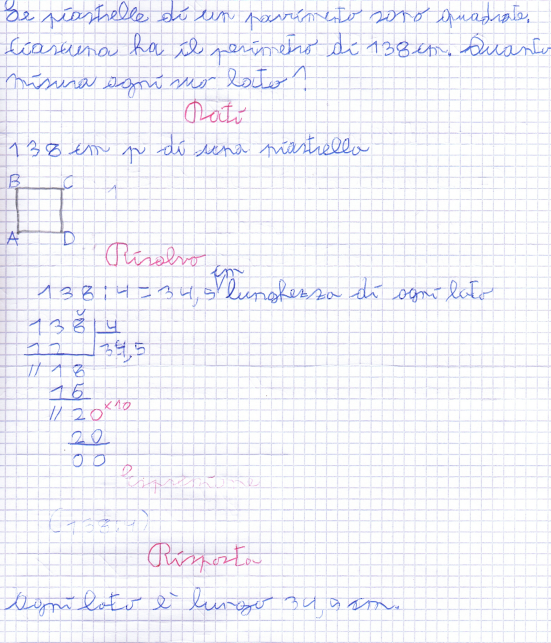 Le piastrelle di un pavimento sono quadrate.
Ciascuna ha il perimetro di 138 cm. Quanto
misura ogni suo lato?
Dati
138 cm p di una piastrella
B C
A D
Risolvo
138 : 4 = 34,5 cm lunghezza di ogni lato
138 4
12 34,5
// 18
16
// 20 x10
20
00
Espressione
(138:4)
Risposta
Ogni lato è lungo 34,5 cm.